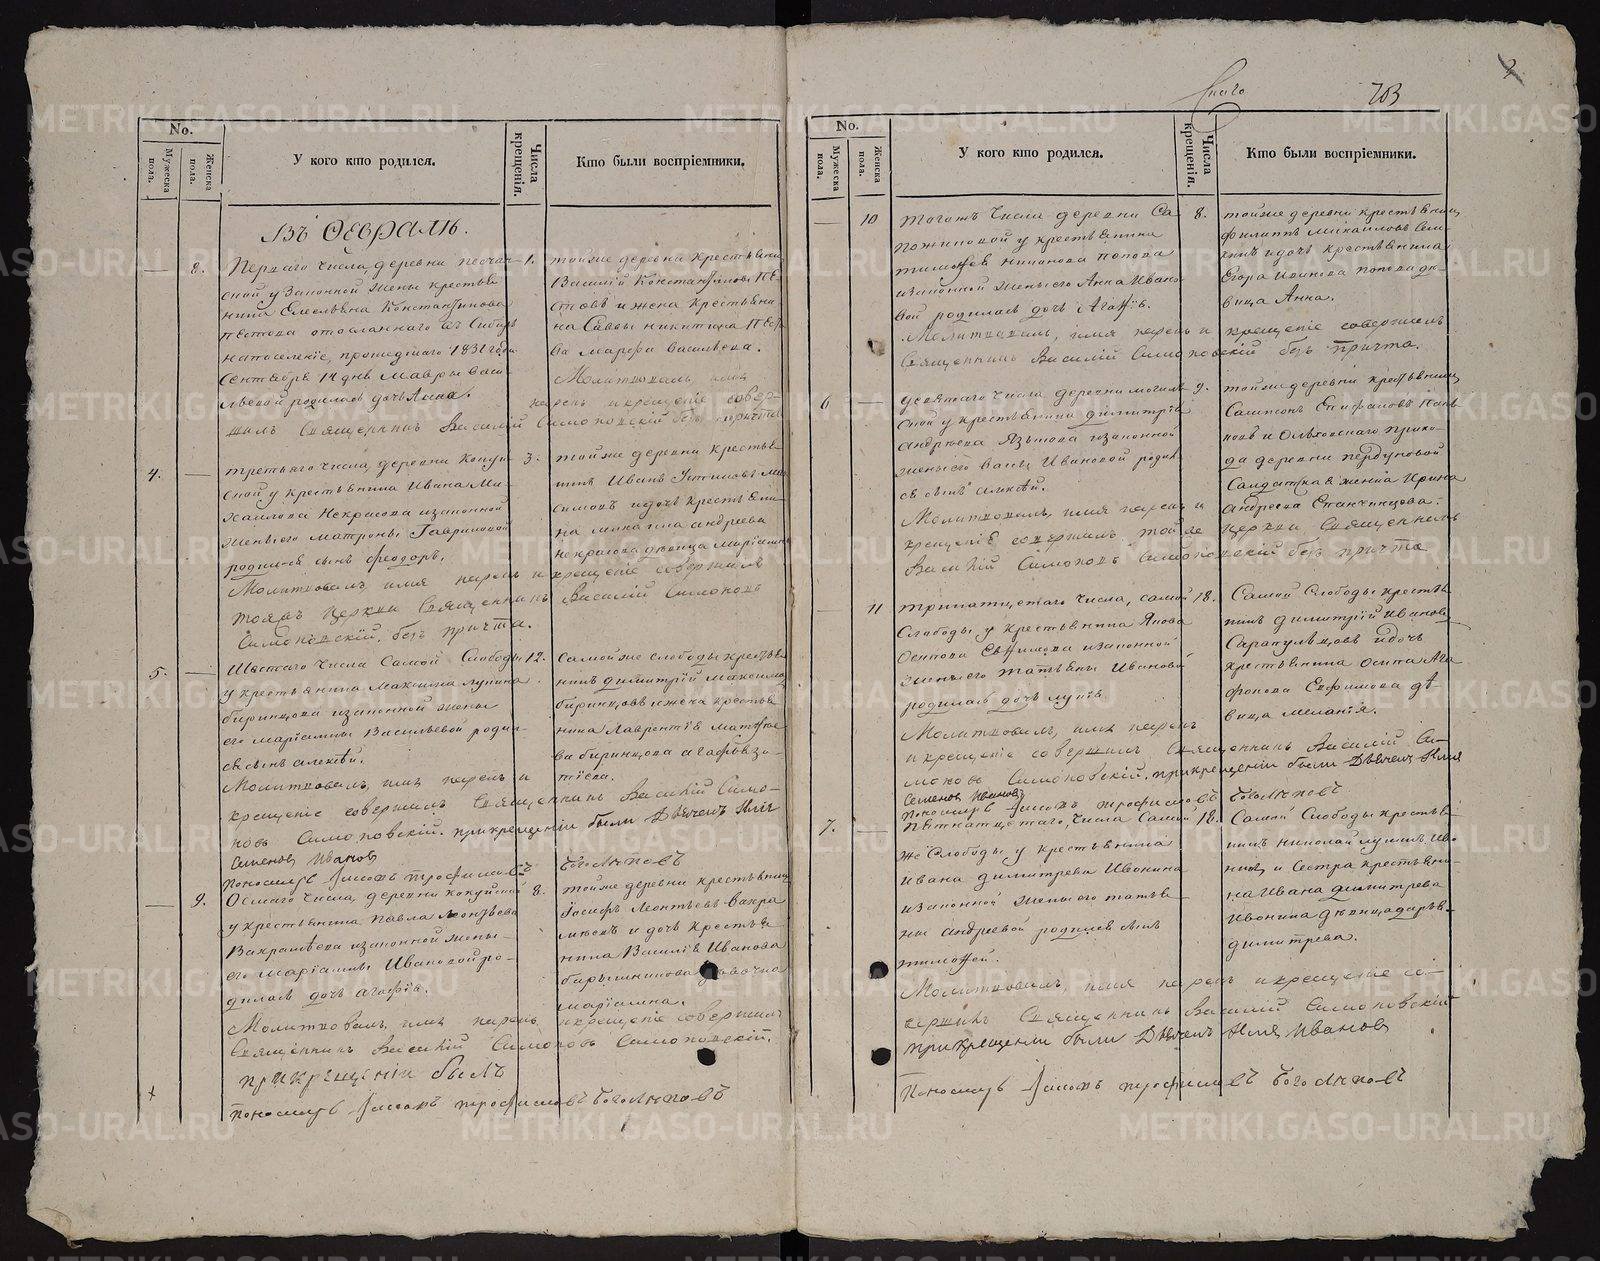 No.
Мужеска пола.
Женска пола.
У кого кто родился.
Числа крещенія.
Кто были воспріемники.
Въ Февралѣ.
8.
Перваго числа, деревни песчан-
ской у Законной жены крестья
нина Емельяна Константинова
Пестова отосланнаго въ Сибирь
напоселеніе, прошедшаго 1831 года
Сентября 14 дня Мавры Васи
льевой родилась дочь Анна.
1.
тойже деревни крестьянинъ
Василій Константиновъ Пе
стовъ и жена крестьяни
на Саввы никитина Песто
ва Марфа Васильева.
Молитвовалъ, имя
нарекъ и крещеніе совер-
шилъ Священникъ Василій Симоновскій безъ причта
4.
третьяго числа, деревни
ской у крестьянина Ивана Ми
хаилова Некрасова изаконной
жены его матроны Гавриловой
родился сынъ феодоръ.
3.
тойже деревни крестья
нинъ Иванъ
симовъ идочь крестьяни
на михаила андреева
некрасова девица Маріамна
Молитвовалъ имя нарекъ и крещеніе совершилъ
тояжъ Церкви Священникъ Василій Симоновъ
Симоновскій, безъ причта.
5.
Шестаго числа Самой Слободы
у крестьянина Максима лупина
биринцова изаконной жены
его маріамны Васильевой родил-
ся сынъ алексѣй.
12.
Самойже слободы крестья
нинъ димитрій Максимов
биринцовъ ижена крестья
нина Лаврентія матфѣе
ва биринцова агафья
тіева.
Молитвовалъ, имя нарекъ и
крещеніе совершилъ Священникъ Василій Симо-
новъ Симоновскій. прикрещеніи были Дьячекъ Илія
Семеновъ Ивановъ
Пономарь Іаковъ трофимовъ Боголѣповъ
9.
Осмаго числа, деревни кокуйской
у крестьянина Павла Леонтьева
Вахрамѣева изаконной жены-
его Маріамны Ивановой ро-
дилась дочь агафія.
8.
тойже деревни крестьянинъ
Іосифъ Леонтьевъ вахра
мѣевъ и дочь крестья
нина Василія Иванова
барышникова девочка
маріамна.
Молитвовалъ, имя нарекъ, икрещеніе совершилъ
Священникъ Василій Симоновъ Симоновскій.
прикрещеніи былъ
Пономарь Іаковъ трофимовъ Боголѣповъ
703
No.
Мужеска пола.
Женска пола.
У кого кто родился.
Числа крещенія.
Кто были воспріемники.
10
тогожъ числа деревни Са
пожниковой у крестьянина
тимофея никонова попова
изаконной жены его Анны Ивано
вой родилась дочь Агафія.
8.
тойже деревни крестьянинъ
филиппъ михайловъ
идочь крестьянина
Егора Иванова попова дѣ
вица Анна.
Молитвовалъ, имя нарекъ и крещеніе совершилъ
Священникъ Василій Симоновскій безъ Причта.
6
девятаго числа, деревни могиль
ской у крестьянина димитрія
андреева Язykова изаконной
жены его Ивановой родил
ся сынъ алексѣй.
9.
тойже деревни крестьянинъ
Сампсонъ Епифановъ
новъ и Ольховскаго прихо-
да деревни
Салдатская женка Ирина
андреева
Молитвовалъ, имя нарекъ и
крещеніе совершилъ тойже Церкви Священникъ
Василій Симоновъ Симоновскій безъ причта
11
тринатцетаго числа, самой
Слободы у крестьянина Якова
Осипова Евфимова изаконной
жены его татьяны Ивановой
родилась дочь
18.
Самой Слободы крестья
нинъ димитрій Ивановъ
Сарапульцовъ идочь
крестьянина Осипа Ага
фонова Евфимова дѣ
вица меланія.
Молитвовалъ, имя нарекъ
и крещеніе совершилъ Священникъ Василій Си-
моновъ Симоновскій. прикрещеніи были Дьячекъ Илия
Семеновъ Ивановъ
Пономарь Іаковъ трофимовъ Боголѣповъ
7.
Пятнатцетаго, числа Самой
же Слободы у крестьянина
Ивана димитрева Ивонина
изаконной жены его татья
ны андреевой родился сынъ
тимофей.
18.
Самой Слободы крестья
нинъ николай Иво
нинъ и Сестра крестьяни-
на Ивана димитрева
Ивонина девица дарья
димитрева.
Молитвовалъ, имя нарекъ икрещеніе со-
вершилъ Священникъ Василій Симоновскій
прикрещеніи были Дьячекъ Илия Ивановъ
Пономарь Іаковъ трофимовъ Боголѣповъ
METRIKI.GASO-URAL.RU